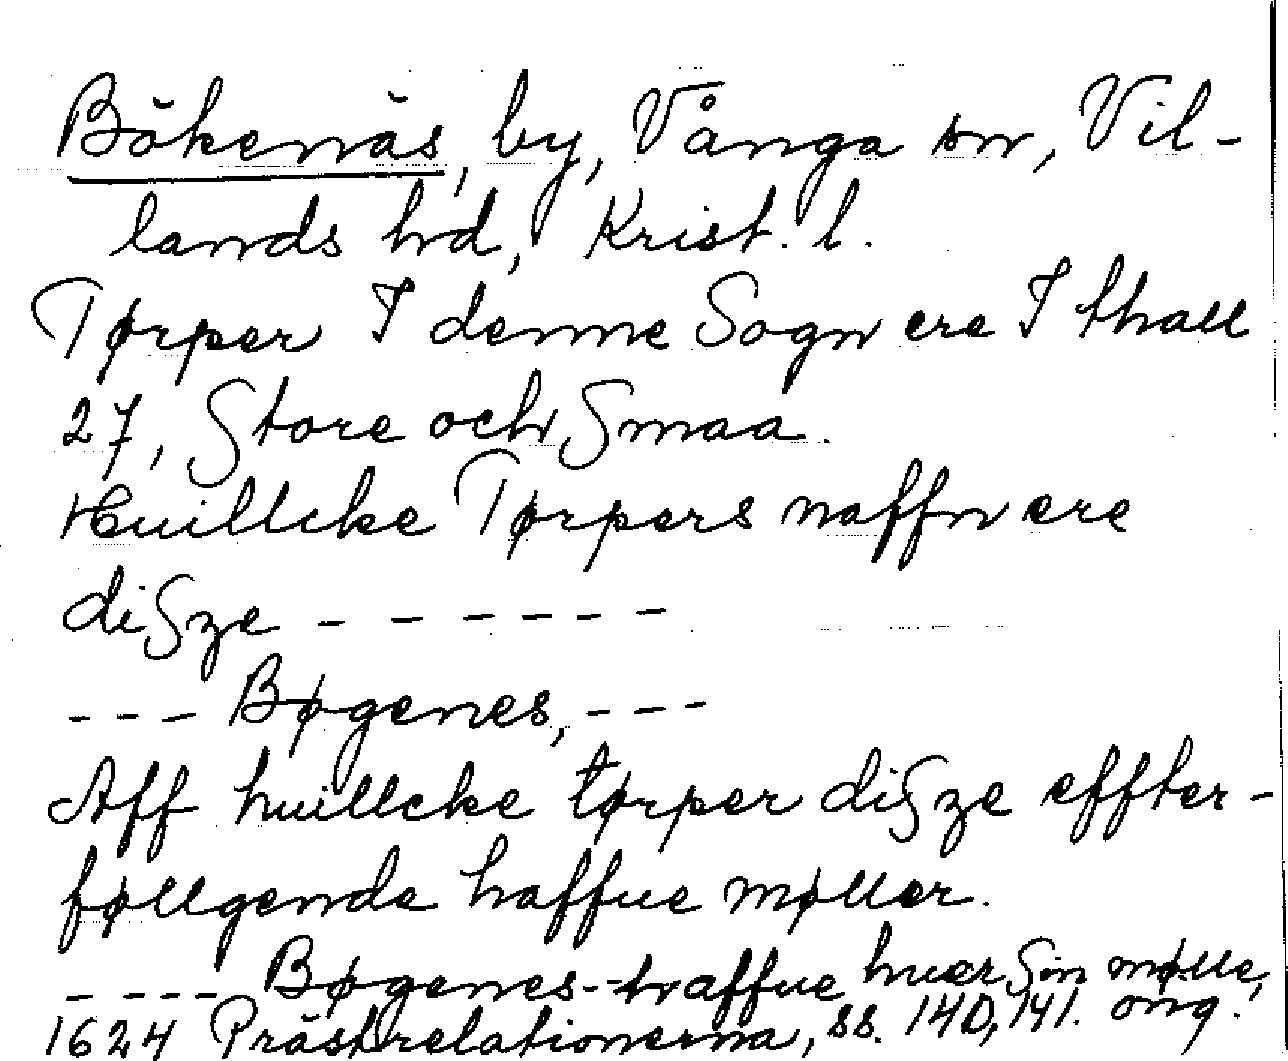 Bökenäs, by, Vånga sn, Vil-
lands hd, Krist. l.
Tørper I denne Sogn ere I thall
27, Store och Smaa.
Huillcke Tørpers naffn ere
diSze - - - - - - -
- - - Bøgenes, - - -
Aff huillcke tørper diSze effter-
føllgende haffue møller.
- - - - Bøgenes - haffue huer Sin mølle,
1624 Prästrelationerna, ss. 140, 141. orig.